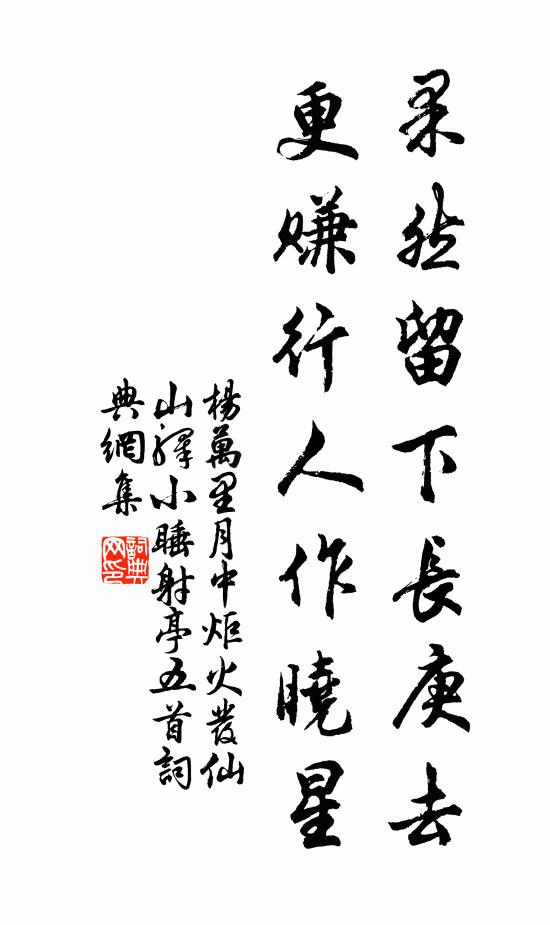 果然留下長庚去
更賺行人作曉星
楊萬里月中炬火發仙
山驛小睡射亭五首詞
典網集
詞典網印